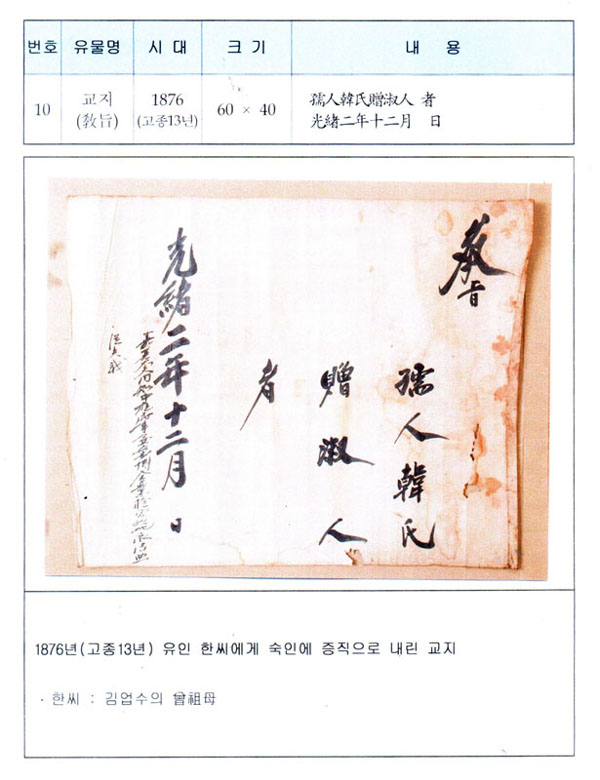 번호 유물명 시 대 크 기 내 용
10 교지 (敎旨) 1876 (고종13년) 60 × 40 孺人韓氏贈淑人 者
光緖二年十二月 日
敎旨
孺人韓氏
贈淑人
者
光緖二年十二月 日
1876년(고종13년) 유인 한씨에게 숙인에 증직으로 내린 교지
· 한씨 : 김업수의 曾祖母